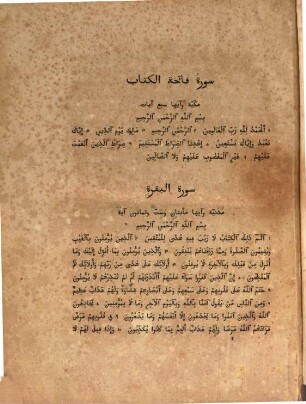 سورة فاتحة الكتاب
مكية وآيها سبع آيات
بِسْمِ اللّٰهِ الرَّحْمٰنِ الرَّحِيمِ
ٱلْحَمْدُ لِلّٰهِ رَبِّ ٱلْعَالَمِينَ ٱلرَّحْمٰنِ ٱلرَّحِيمِ مَالِكِ يَوْمِ ٱلدِّينِ إِيَّاكَ
نَعْبُدُ وَإِيَّاكَ نَسْتَعِينُ إِهْدِنَا ٱلصِّرَاطَ ٱلْمُسْتَقِيمَ صِرَاطَ ٱلَّذِينَ أَنْعَمْتَ
عَلَيْهِمْ غَيْرِ ٱلْمَغْضُوبِ عَلَيْهِمْ وَلَا ٱلضَّالِّينَ
سورة البقرة
مدنية وآيها مائتان وست وثمانون آية
بِسْمِ اللّٰهِ الرَّحْمٰنِ الرَّحِيمِ
الٓمٓ ذٰلِكَ ٱلْكِتَابُ لَا رَيْبَ فِيهِ هُدًى لِلْمُتَّقِينَ ٱلَّذِينَ يُؤْمِنُونَ بِٱلْغَيْبِ
وَيُقِيمُونَ ٱلصَّلَوةَ وَمِمَّا رَزَقْنَاهُمْ يُنْفِقُونَ وَٱلَّذِينَ يُؤْمِنُونَ بِمَا أُنْزِلَ إِلَيْكَ وَمَا
أُنْزِلَ مِنْ قَبْلِكَ وَبِٱلْآخِرَةِ هُمْ يُوقِنُونَ أُولٰئِكَ عَلَى هُدًى مِنْ رَبِّهِمْ وَأُولٰئِكَ هُمُ
ٱلْمُفْلِحُونَ إِنَّ ٱلَّذِينَ كَفَرُوا سَوَاءٌ عَلَيْهِمْ أَأَنْذَرْتَهُمْ أَمْ لَمْ تُنْذِرْهُمْ لَا يُؤْمِنُونَ
خَتَمَ ٱللّٰهُ عَلَى قُلُوبِهِمْ وَعَلَى سَمْعِهِمْ وَعَلَى أَبْصَارِهِمْ غِشَاوَةٌ وَلَهُمْ عَذَابٌ عَظِيمٌ
وَمِنَ ٱلنَّاسِ مَنْ يَقُولُ آمَنَّا بِٱللّٰهِ وَبِٱلْيَوْمِ ٱلْآخِرِ وَمَا هُمْ بِمُؤْمِنِينَ يُخَادِعُونَ
ٱللّٰهَ وَٱلَّذِينَ آمَنُوا وَمَا يَخْدَعُونَ إِلَّا أَنْفُسَهُمْ وَمَا يَشْعُرُونَ فِي قُلُوبِهِمْ مَرَضٌ
فَزَادَهُمُ ٱللّٰهُ مَرَضًا وَلَهُمْ عَذَابٌ أَلِيمٌ بِمَا كَانُوا يَكْذِبُونَ وَإِذَا قِيلَ لَهُمْ لَا